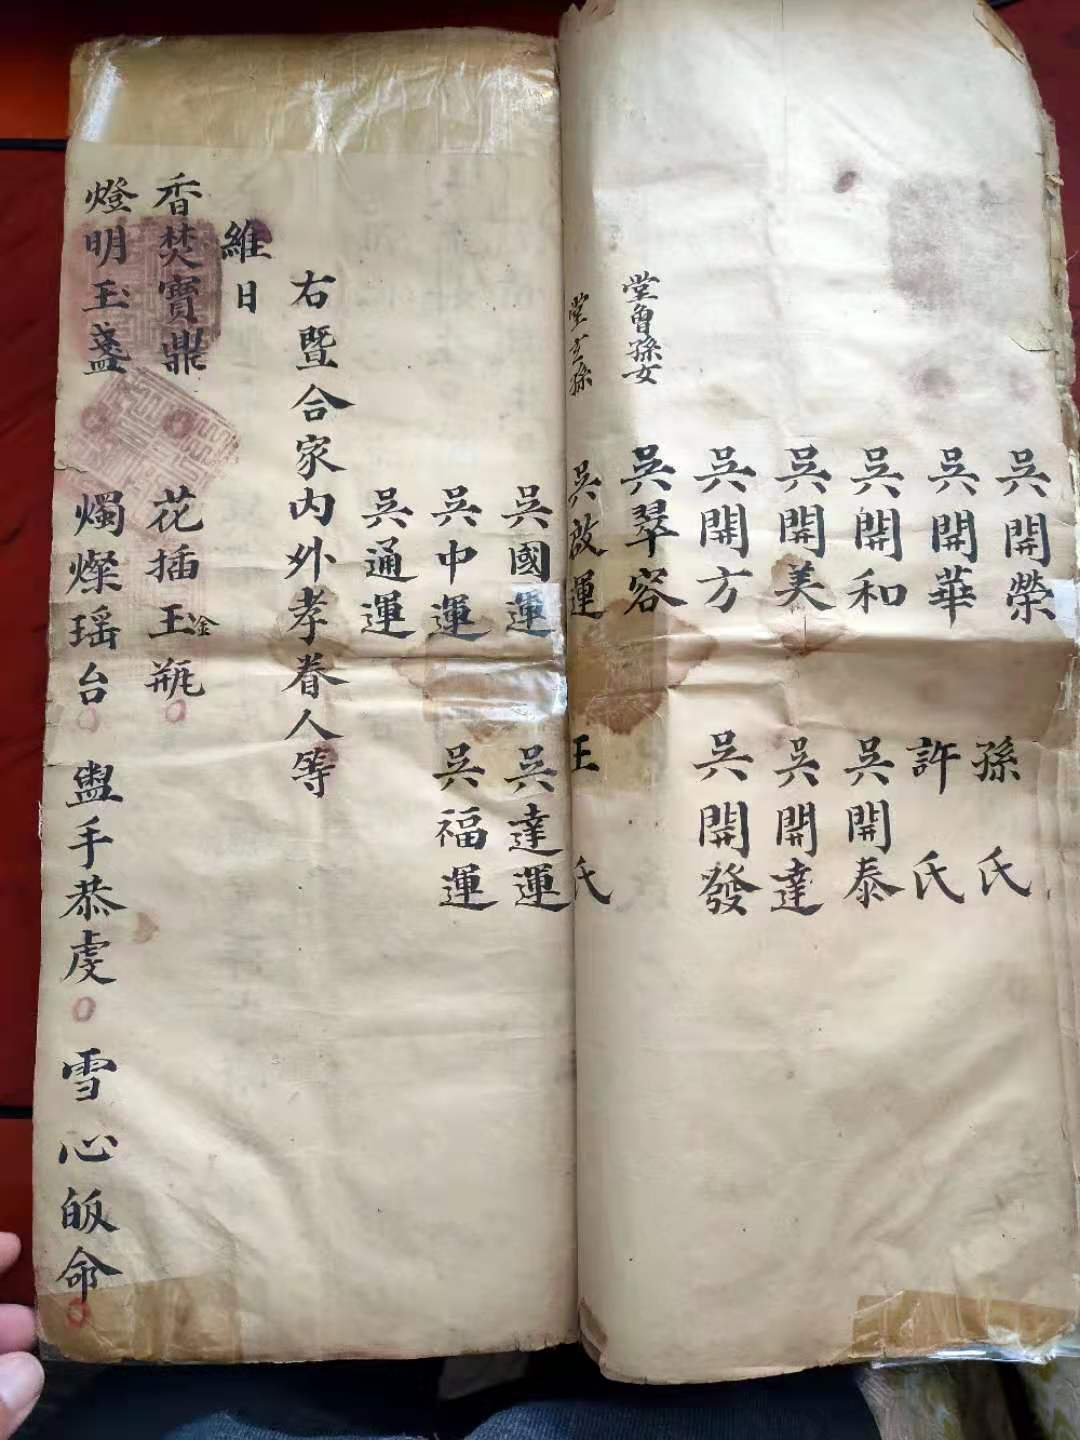 吳開榮 孫氏
吳開華 許氏
吳開和 吳開泰
吳開美 吳開達
吳開方 吳開發
堂曾孫女 吳翠容
堂玄孫 吳啟運 王氏
吳國運 吳達運
吳中運 吳福運
吳通運
右暨合家內外孝眷人等
維日
香焚寶鼎 花插玉金瓶
燈明玉盞 燭燦瑶台 盥手恭虔 雪心皈命